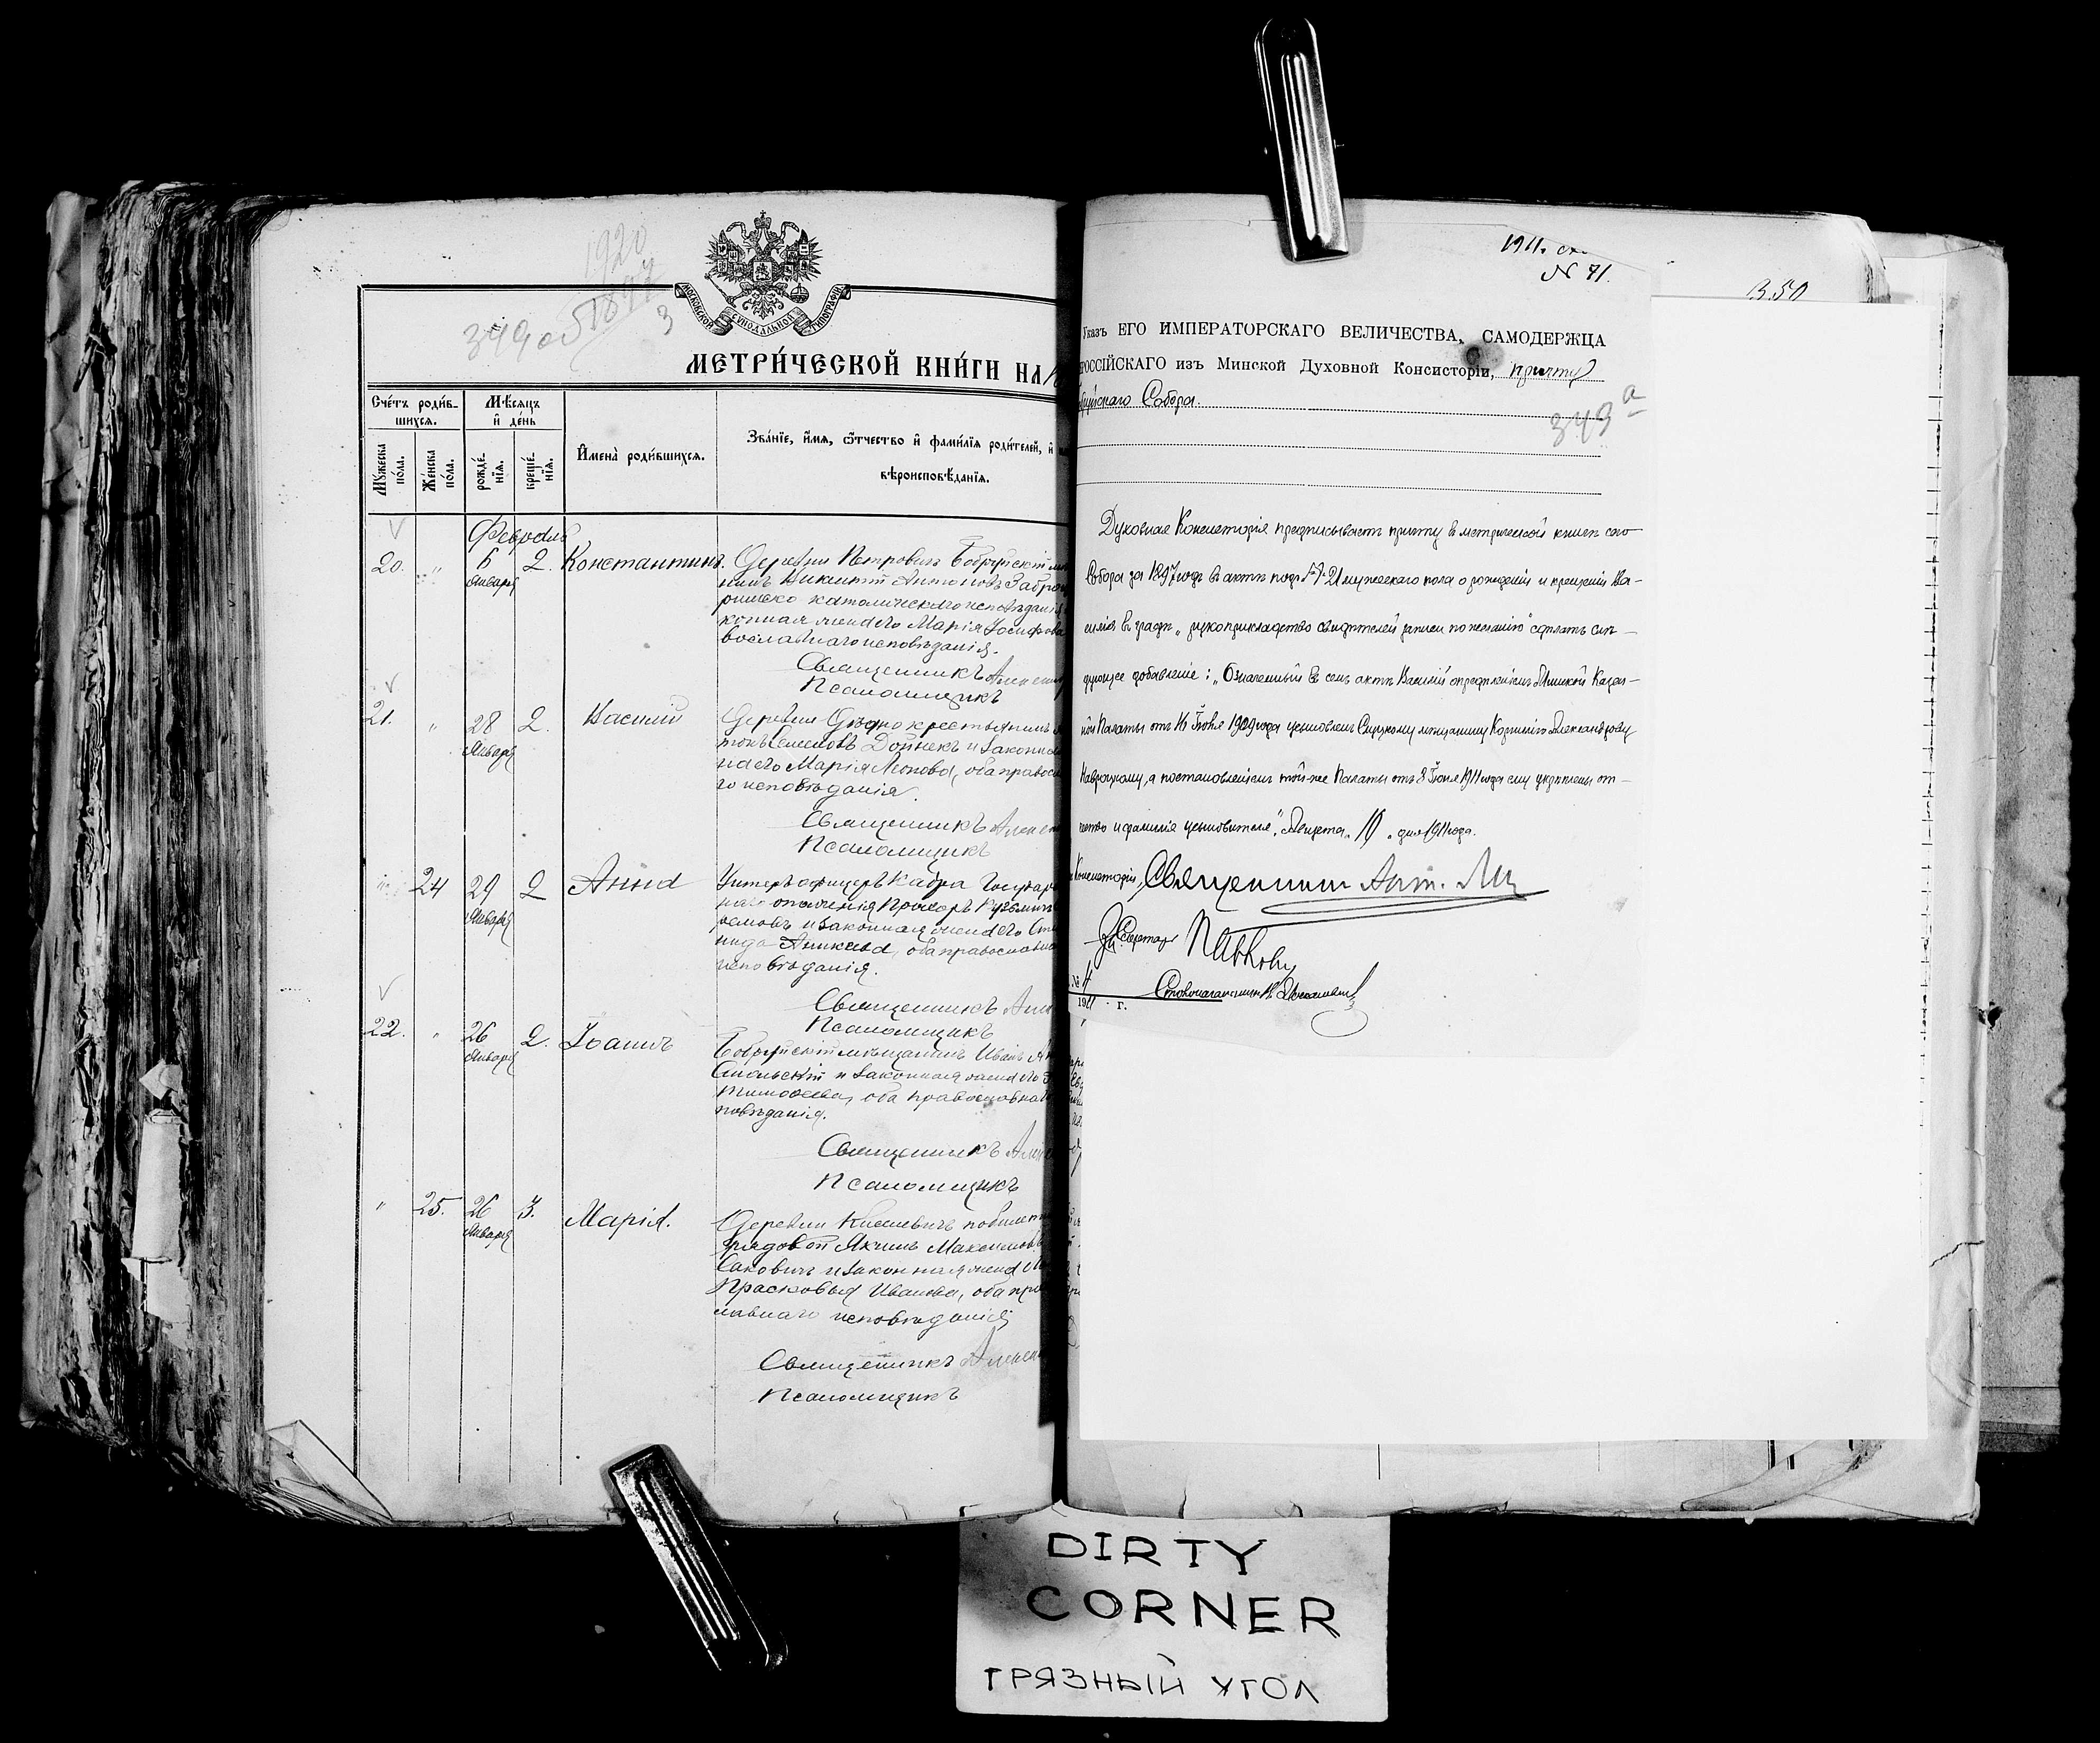 1920
1897
349 об
3
МОСКОВСКОЙ СѴНОДАЛЬНОЙ ТИПОГРАФІИ
МЕТРИ́ЧЕСКОЙ КНИ́ГИ НА
Сче́тъ роди́вшихся.
Мѣ́сяцъ и҆ де́нь
Мꙋ́жеска по́ла.
Же́нска по́ла.
рожде́нїѧ.
креще́нїѧ.
И҆мена̀ роди́вшихсѧ.
Зва́нїе, и҆́мѧ, ѻ҆́тчество и҆ фами́лїѧ роди́телей, и҆
вѣроисповѣ́данїѧ.
Февраль
20. " 6 Января 2. Константинъ.
Деревни Петровичъ Бобруйскій
нинъ Викентій Антоновъ
римско католическаго исповѣданія
конная жена его Марія Іосифова
вославнаго исповѣданія.
Священникъ
Псаломщикъ
21. " 28 Января 2. Василій
Деревни крестьянинъ
Семеновъ Дойнекъ и законная
на его Марія Леонова, оба правосл
го исповѣданія.
Священникъ
Псаломщикъ
" 24 29 Января 2 Анна
Унтеръ офицеръ Кадра Государ
наго ополченія Прохоръ Кузьминъ
и законная жена его
Аникіева, оба православна
исповѣданія.
Священникъ
Псаломщикъ
22. " 26 Января 2. Іоаннъ
Бобруйскій мѣщанинъ Иванъ
и законная жена его
Тимофеева, оба православнаго
повѣданія.
Священникъ
Псаломщикъ
" 25. 26 Января 3. Марія.
Деревни Киселевичъ
рядовой Якимъ Максимовъ
Саковичъ и законная жена
Прасковья Иванова, оба пра
славнаго исповѣданія
Священникъ
Псаломщикъ
1911. ст.
N 71.
350
Указъ ЕГО ИМПЕРАТОРСКАГО ВЕЛИЧЕСТВА, САМОДЕРЖЦА
РОССІЙСКАГО изъ Минской Духовной Консисторіи, причту
Собора.
349 а
Духовная Консисторія предписываетъ причту в метрической книгѣ сего
Собора за 1897 годъ в актѣ подъ № 21 мужескаго пола о рожденіи и крещеніи Ва-
силія в графѣ „рукоприкладство свидѣтелей записи по желанію" сдѣлать слѣ-
дующее добавленіе: „Означенный в семъ актѣ Василій опредѣленіемъ Минской Казен-
ной Палаты отъ 16 Іюля 1909 года усыновленъ Слуцкому мѣщанину Корнилію Александрову
Навроцкому, а постановленіемъ той-же Палаты отъ 8 Іюля 1911 года ему укрѣплены от-
чество и фамилія усыновителя". Августа „ 10 „ дня 1911 года.
Консисторіи, Священникъ Ант.
Секретарь
Столоначальникъ
1911 г.
DIRTY
CORNER
ГРЯЗНЫЙ УГОЛ